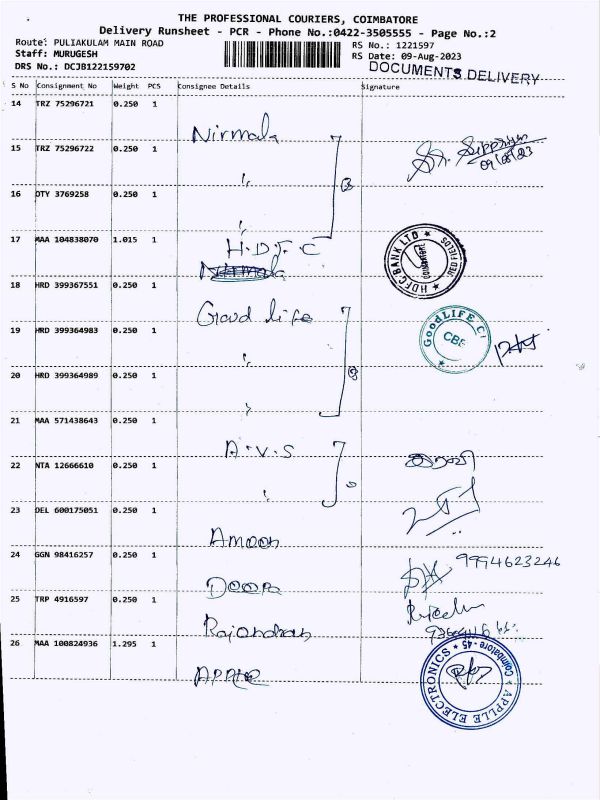 THE PROFESSIONAL COURIERS, COIMBATORE
Delivery Runsheet - PCR - Phone No.:0422-3505555 - Page No.:2
Route: PULIAKULAM MAIN ROAD RS No.: 1221597
Staff: MURUGESH RS Date: 09-Aug-2023
DRS No.: DCJB122159702 DOCUMENTS DELIVERY
S No Consignment No Weight PCS Consignee Details Signature
14 TRZ 75296721 0.250 1
Nirmala
15 TRZ 75296722 0.250 1
09/08/23
16 DTY 3769258 0.250 1
17 MAA 104838070 1.015 1
H.D.F.C
HDFC BANK LTD RED FIELDS COIMBATORE
Nirmala
18 HRD 399367551 0.250 1
Good life
GoodLIFE
CBE
19 HRD 399364983 0.250 1
20 HRD 399364989 0.250 1
21 MAA 571438643 0.250 1
A.V.S
22 NTA 12666610 0.250 1
23 DEL 600175051 0.250 1
Amoon
24 GGN 98416257 0.250 1
9994623246
Deepa
25 TRP 4916597 0.250 1
Rajendran
26 MAA 100824936 1.295 1
APPLE
APPLE ELECTRONICS Coimbatore - 45